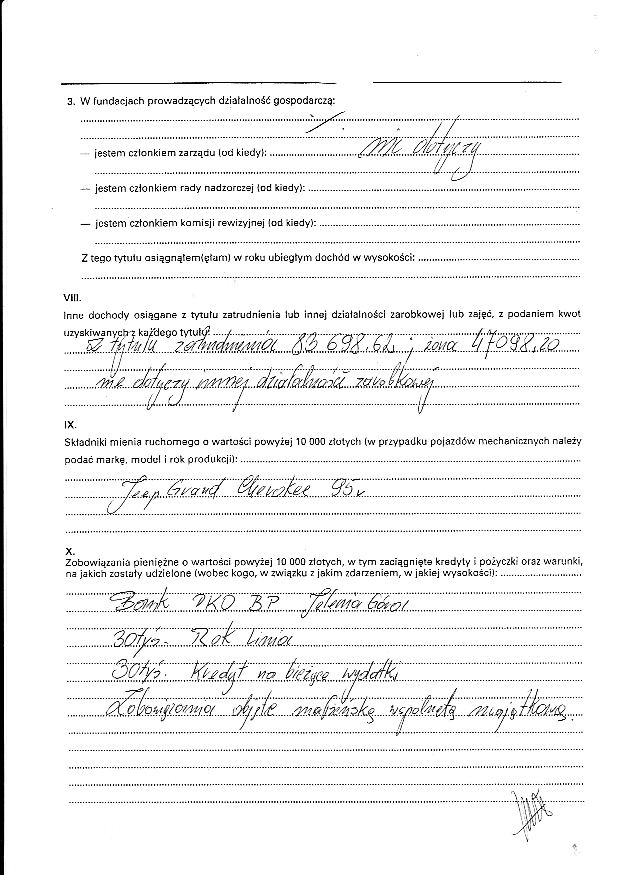 3. W fundacjach prowadzących działalność gospodarczą:
nie dotyczy
— jestem członkiem zarządu (od kiedy):
— jestem członkiem rady nadzorczej (od kiedy):
— jestem członkiem komisji rewizyjnej (od kiedy):
Z tego tytułu osiągnąłem(ęłam) w roku ubiegłym dochód w wysokości:
VIII.
Inne dochody osiągane z tytułu zatrudnienia lub innej działalności zarobkowej lub zajęć, z podaniem kwot
uzyskiwanych z każdego tytułu:
Z tytułu zatrudnienia 83 698,62 ; żona 47098,20
nie dotyczy innej działalności zarobkowej
IX.
Składniki mienia ruchomego o wartości powyżej 10 000 złotych (w przypadku pojazdów mechanicznych należy
podać markę, model i rok produkcji):
Jeep Grand Cherokee 95r
X.
Zobowiązania pieniężne o wartości powyżej 10 000 złotych, w tym zaciągnięte kredyty i pożyczki oraz warunki,
na jakich zostały udzielone (wobec kogo, w związku z jakim zdarzeniem, w jakiej wysokości):
Bank PKO BP Jelenia Góra
30tyś. Rok linia
30tyś. Kredyt na bieżące wydatki
Zobowiązania objęte małżeńską wspólnotą majątkową